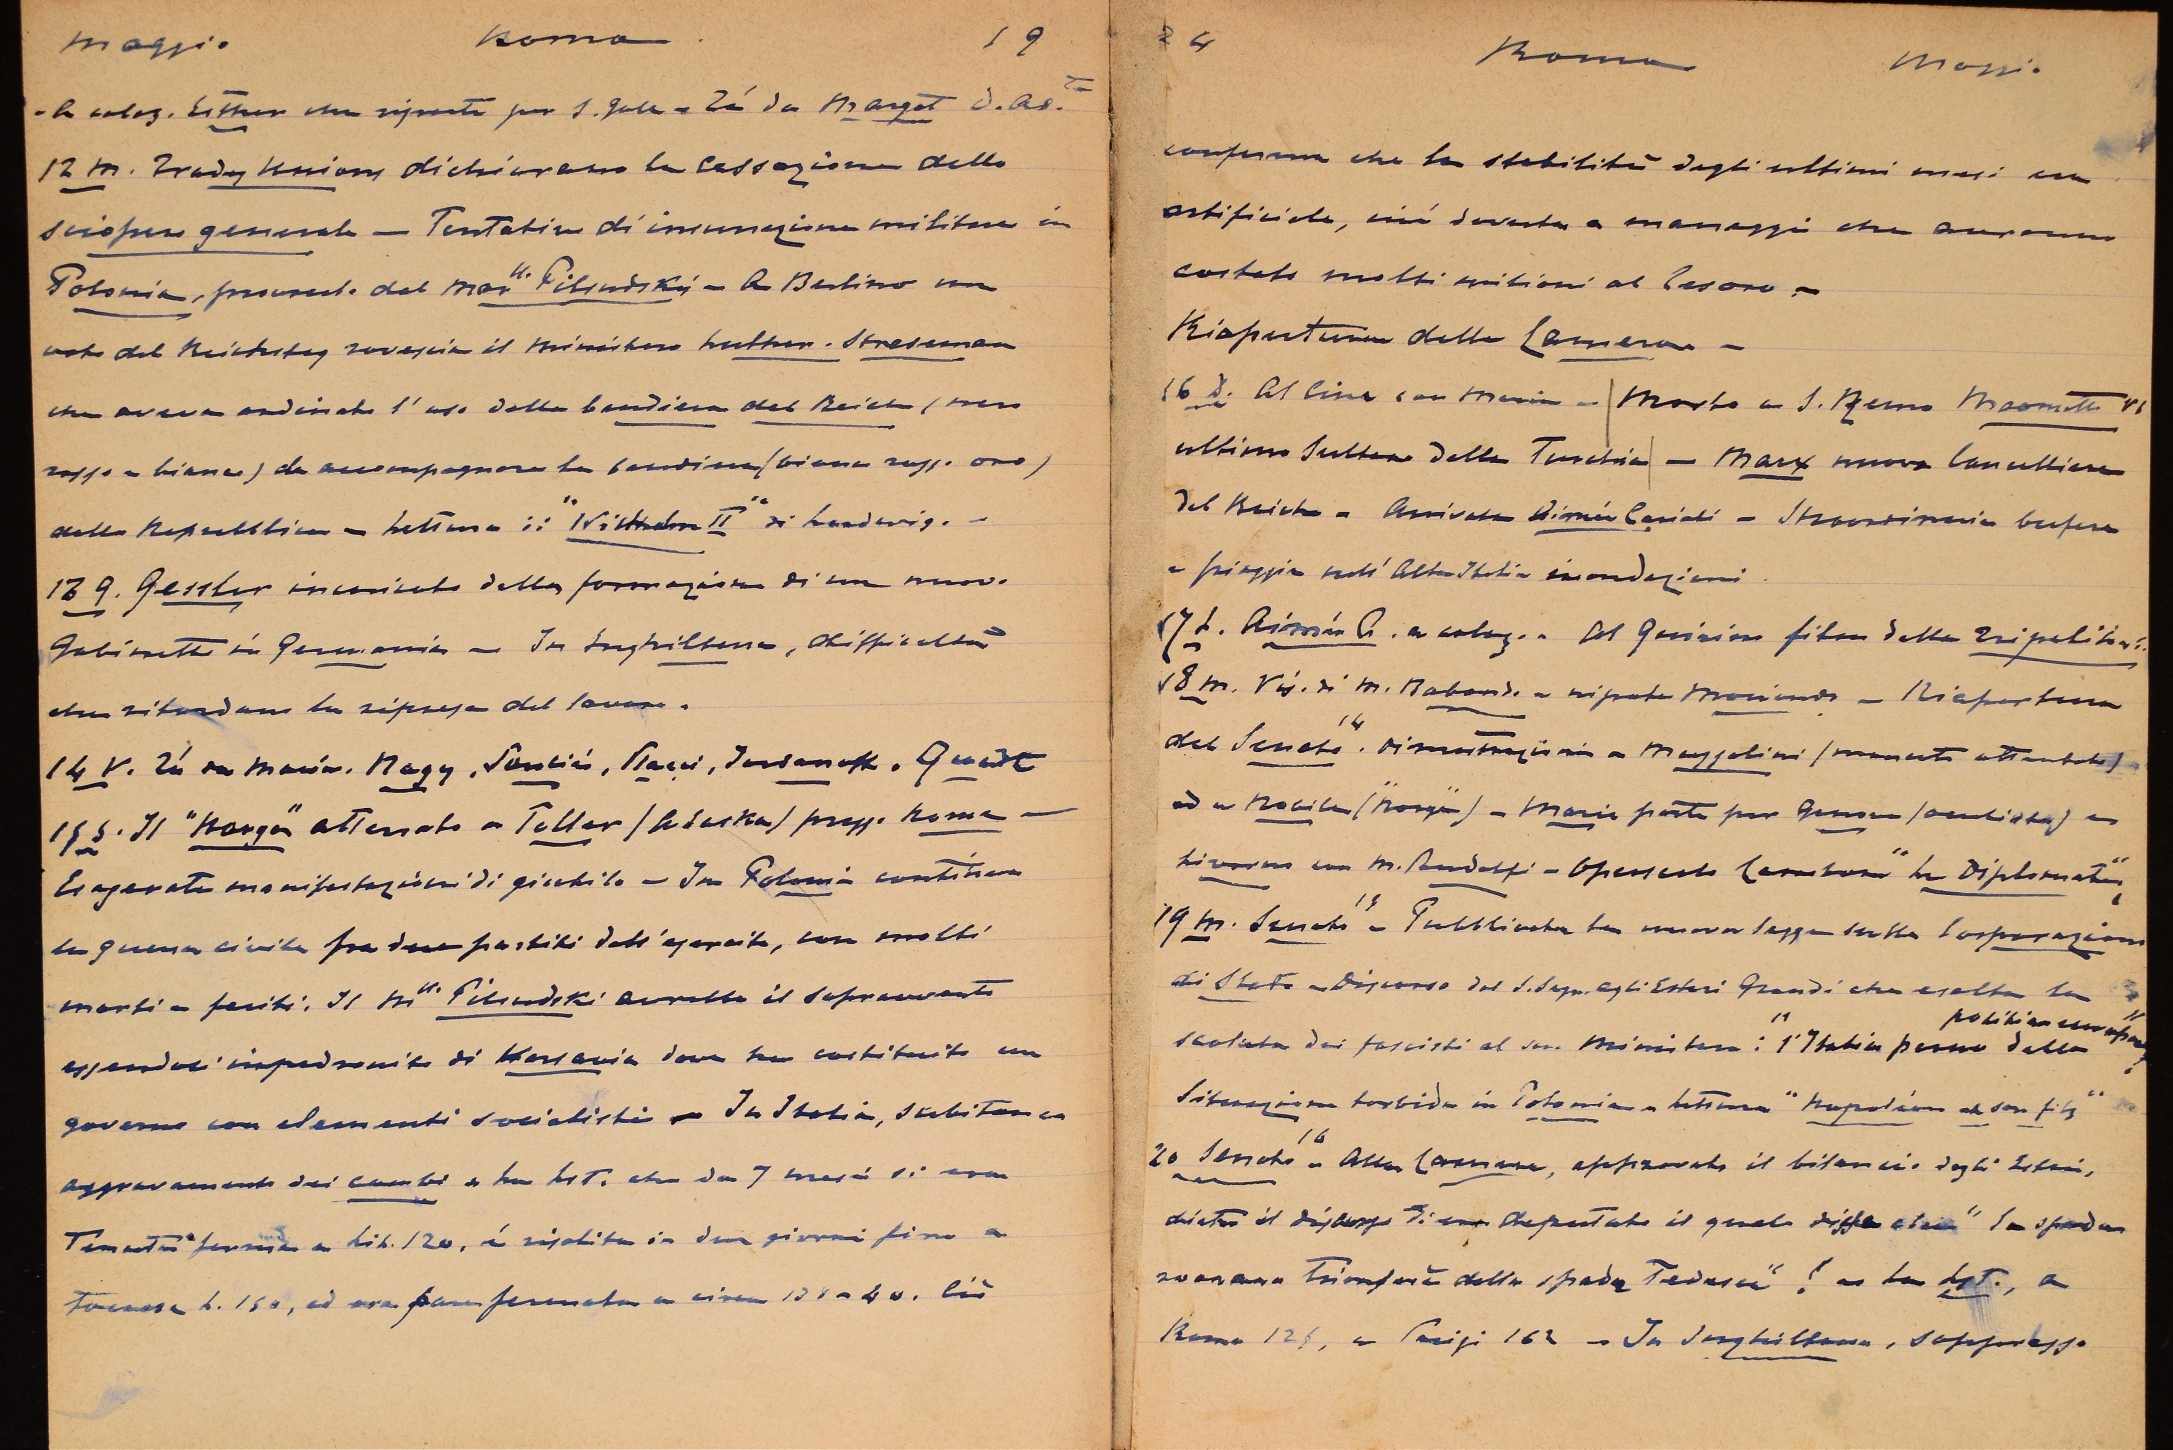 Maggio Roma 19
- A colaz. Esther che riparte per S. Gall - Zá da Margot d. As.ta
12 M. Trady Unions dichiarano la cassazione dello
sciopero generale — Tentativo di insurrezione militare in
Polonia, provocato dal Mar.ll Pilsudski - A Berlino un
voto del Reichstag rovescia il Ministero Luther. Streseman
che aveva ordinato l'uso della bandiera del Reich (nero
rosso e bianco) da accompagnare la bandiera (bianca rosso oro)
della Repubblica - Lettura: "Wilhelm II" di Ludwig. -
13 G. Gessler incaricato della formazione di un nuovo
Gabinetto in Germania - In Inghilterra, difficoltà
che ritardano la ripresa del lavoro.
14 V. Zá da Maria. Nagy, Soucié, Pacci, Quadt
15 S. Il "Norge" atterrato a Teller (Alaska) presso Nome —
Esagerate manifestazioni di giubilo - In Polonia continua
la guerra civile fra due partiti dell'esercito, con molti
morti e feriti. Il M.ll Pilsudski avrebbe il sopravvento
essendosi impadronito di Varsavia dove ha costituito un
governo con elementi socialisti - In Italia, subitaneo
aggravamento dei cambi - La Lst. che da 7 mesi si era
tenuta ferma a Lit. 120, è risalita in due giorni fino a
toccare L. 150, ed ora pare fermata a circa 138-40. Ciò
24 Roma Maggio
conferma che la stabilità degli ultimi mesi era
artificiale, cioè dovuta a maneggi che avranno
costato molti milioni al Tesoro -
Riapertura della Camera -
16 D. Al Cine con Maria - Morto a S. Remo Maometto VI
ultimo Sultano della Turchia - Marx nuovo Cancelliere
del Reich - Arrivata Aimée - Straordinaria bufera
e pioggia nell'Alta Italia inondazioni.
17 L. Aimée a colaz. - Al Quirino film della Tripolitania.
18 M. Vis. di M. e nipote - Riapertura
del Senato 14. dimostrazioni a Mussolini (mancato attentato)
ed a Nobile ("Norge") - Maria parte per Genova (oculista) e
Livorno con M. Pandolfi - Operette "La
19 M. Senato 15 - Pubblicata la nuova legge sulla Corporazione
di Stato - Discorso del S. Segr. agli Esteri Grandi che esalta la
scalata dei fascisti al suo Ministero: "l'Italia perno della politica europea"
Situazione torbida in Polonia - Lettura "Napoléon et son fils"
20 Senato 16 - Alla Camera, approvato il bilancio degli Esteri,
dietro il discorso di un deputato il quale disse che "la spada
romana trionferà della spada Tedesca"! - La Lst., a
Roma 125, a Parigi 162 - In Inghilterra, soppresso